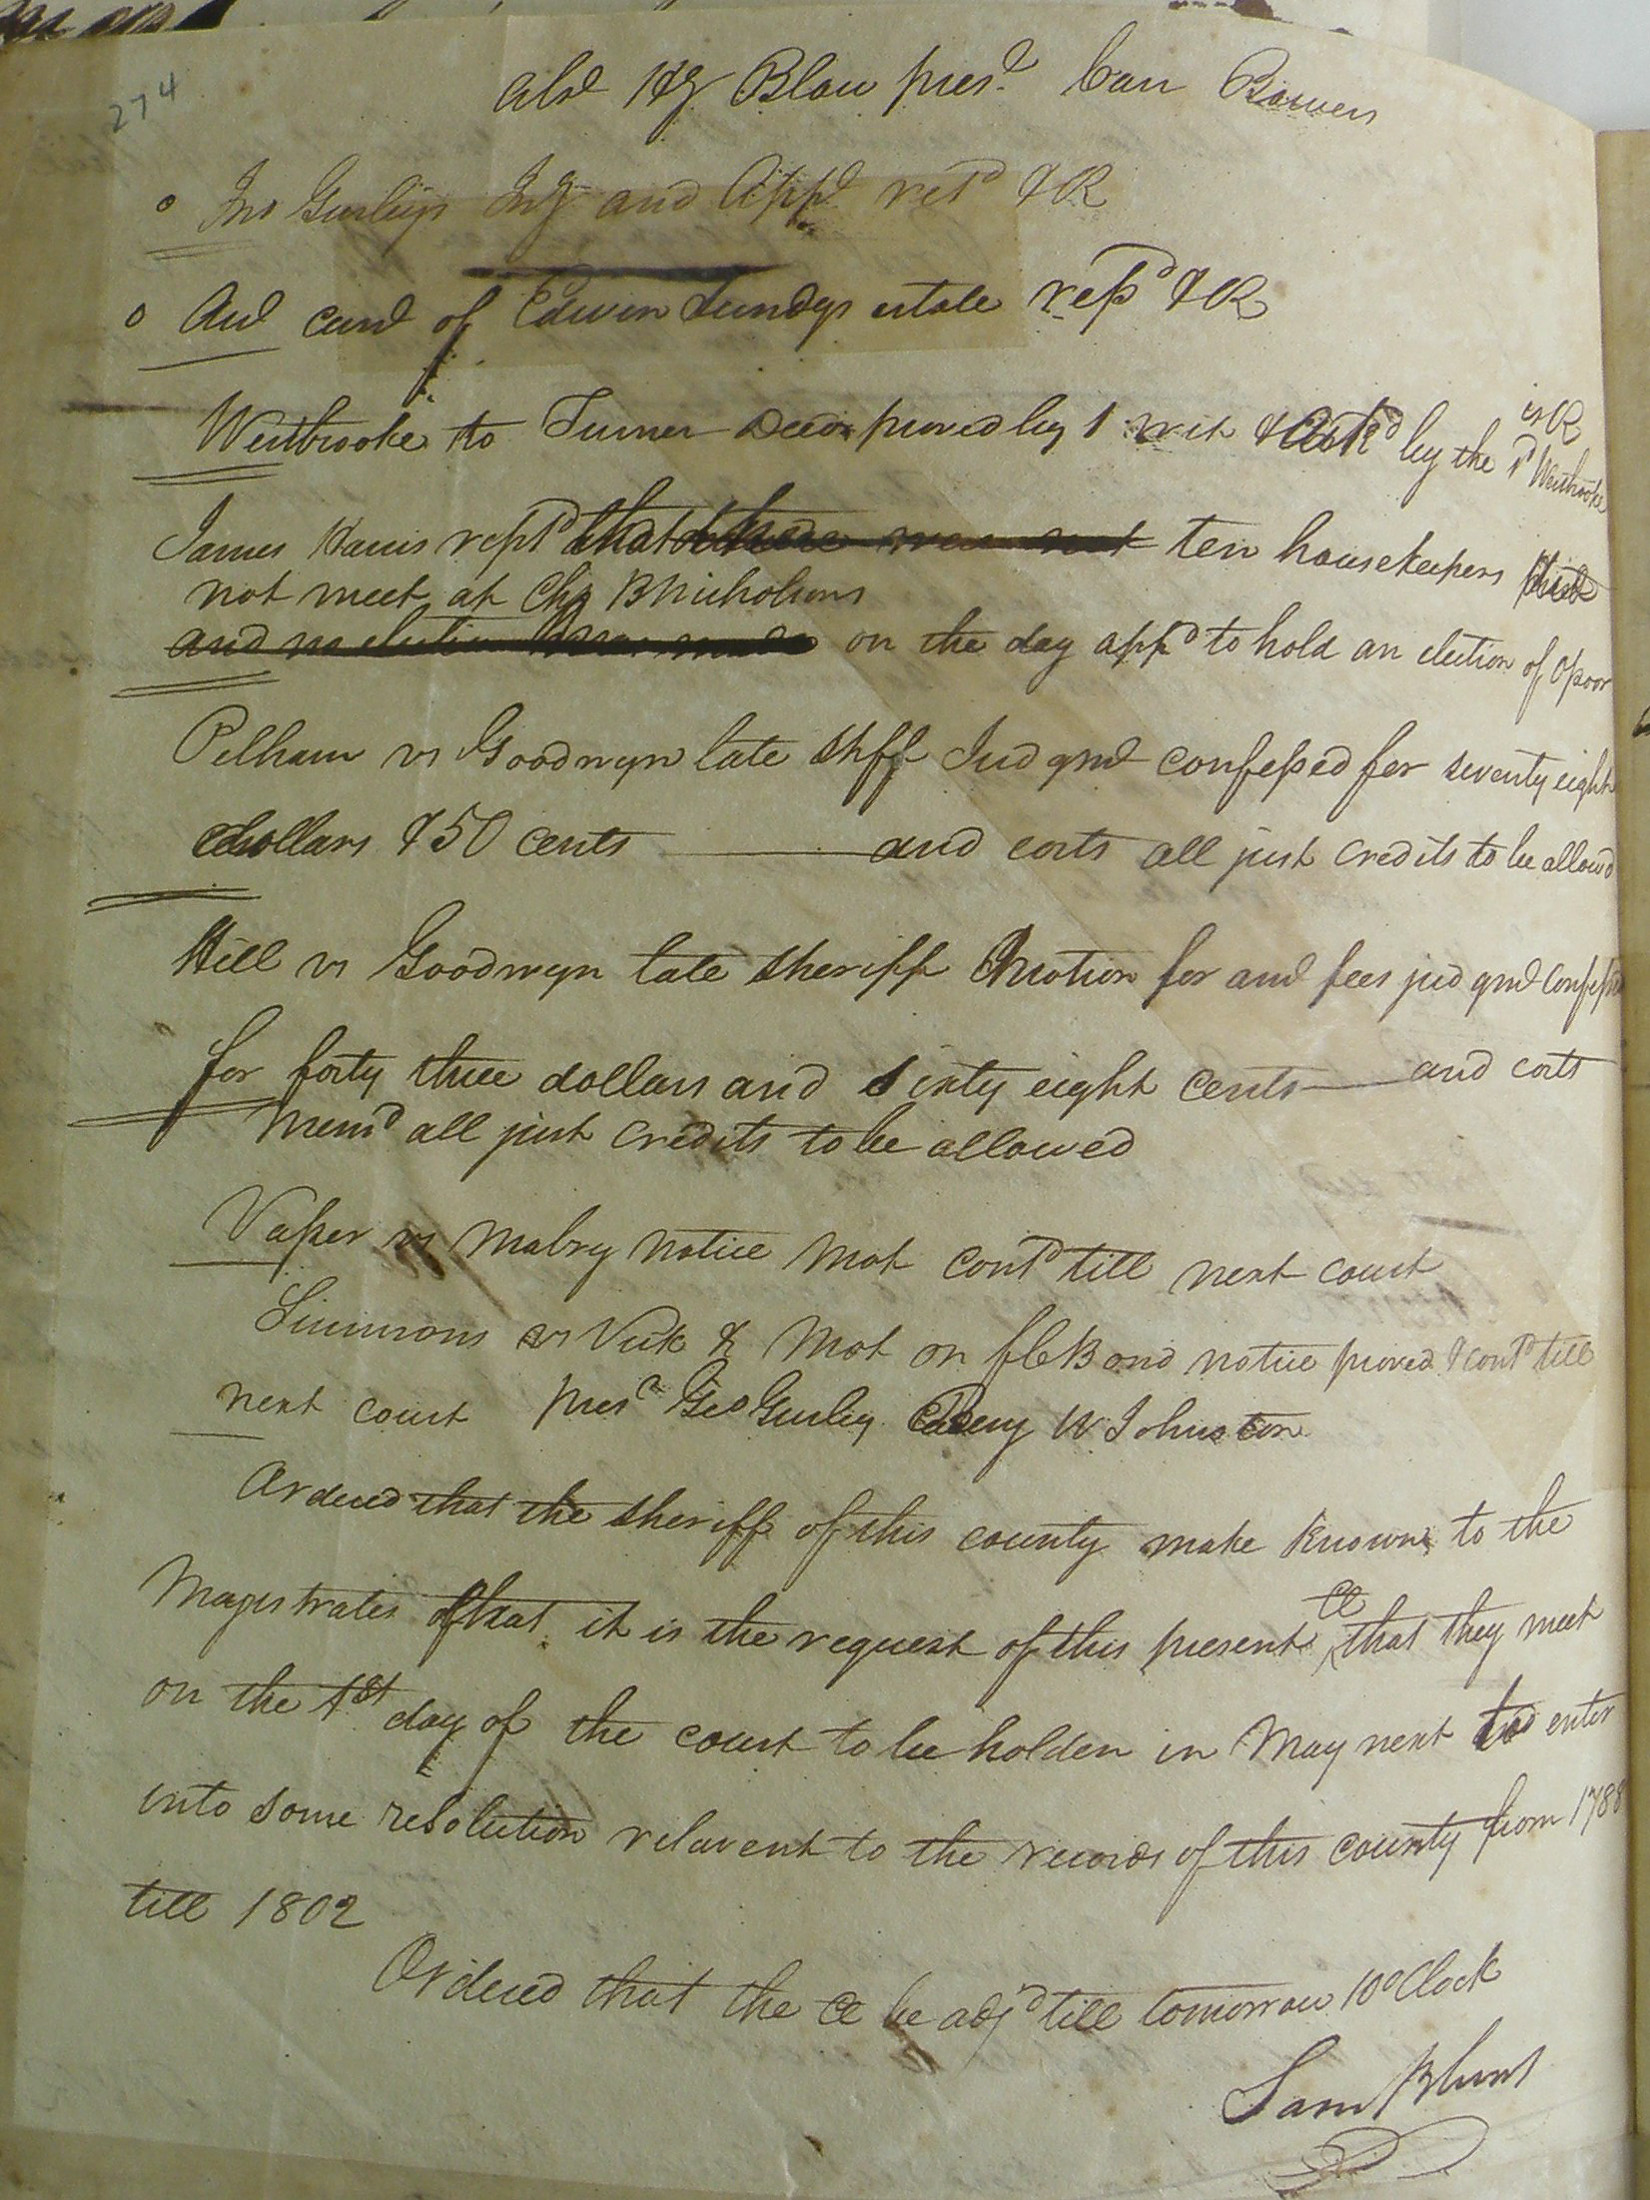 274
abst Hy Blow pres.t Carr Bowers
Jno Gurleys Inv and App.t ret.d & R
Aud curt of Edwin Lundys estate rep.d & R
Westbrooke to Turner Deed proved by 1 wit & Ack.d by the s.d Westbrooke is R
James Harris rept.d that there was not ten housekeepers did
not meet at Chs B Nicholsons
and no election was made on the day app.d to hold an election of Opoor
Pelham vs Goodwyn late Shff Judgmt confessed for seventy eight
dollars & 50 cents ——— and costs all just credits to be allowd
Hill vs Goodwyn late sheriff Motion for amt fees judgmt confessd
for forty three dollars and sixty eight cents —— and costs
Mem.d all just credits to be allowed
Vasser vs Mabry notice Mot cont.d till next court
Simmons vs Vick & Mot on flcBond notice proved & cont.d till
next court pres.t Geo Gurley W Johnston
Ordered that the sheriff of this county make known to the
Magistrates that it is the request of this present Ct that they meet
on the 1st day of the court to be holden in May next to enter
into some resolution relavent to the records of this county from 1788
till 1802
Ordered that the Ct be adj.d till tomorrow 10 oClock
Sam Blunt